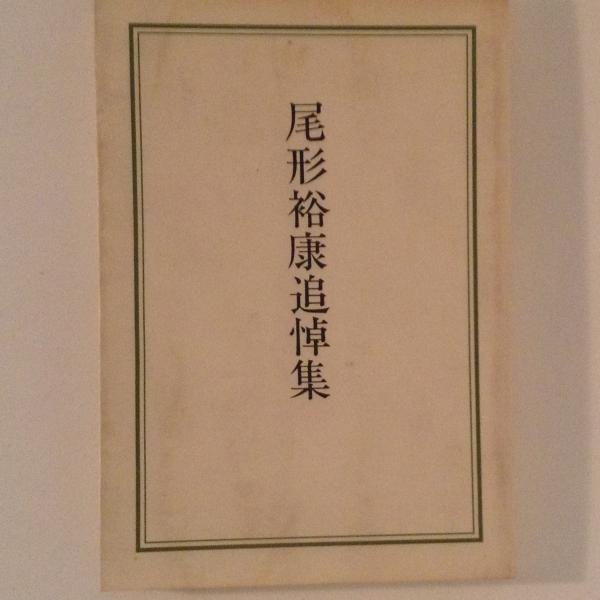 尾形裕康追悼集